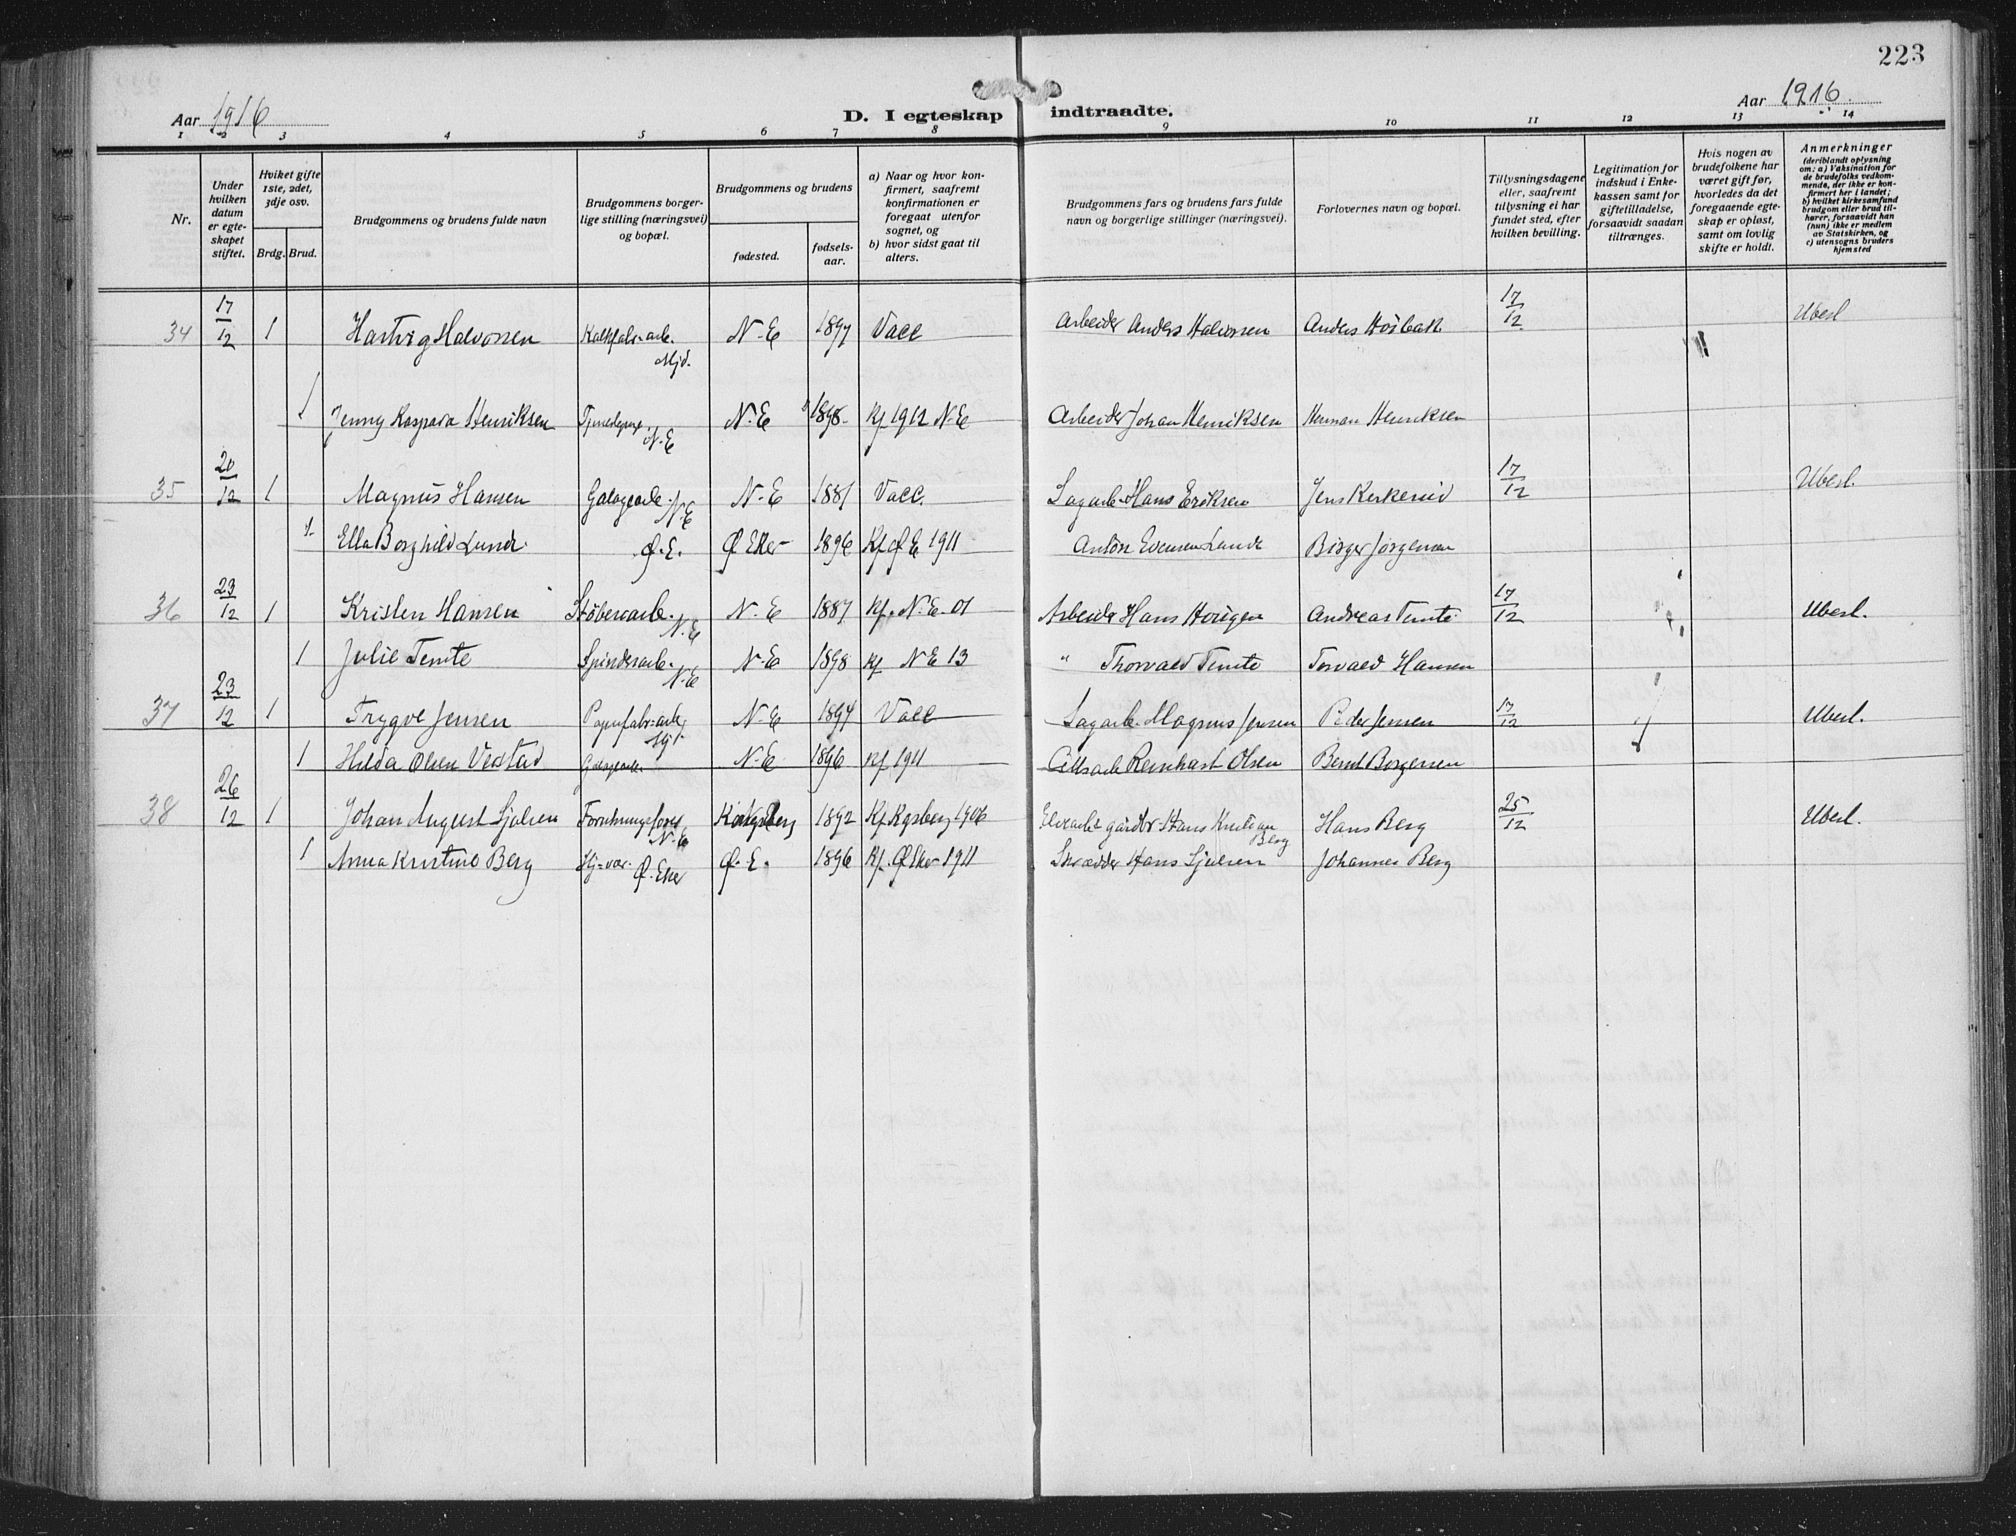 223
Aar 1916
D. I egteskap indtraadte.
Aar 1916.
1 2 3 4 5 6 7 8 9 10 11 12 13 14
Nr.
Under hvilken datum er egteskapet stiftet.
Hviket gifte 1ste, 2det, 3dje osv.
Brdg. Brud.
Brudgommens og brudens fulde navn
Brudgommens borgerlige stilling (næringsvei) og bopæl.
Brudgommens og brudens
fødested.
fødselsaar.
a) Naar og hvor konfirmert, saafremt konfirmationen er foregaat utenfor sognet, og
b) hvor sidst gaat til alters.
Brudgommens fars og brudens fars fulde navn og borgerlige stillinger (næringsvei).
Forlovernes navn og bopæl.
Tillysningsdagene eller, saafremt tillysning ei har fundet sted, efter hvilken bevilling.
Legitimation for indskud i Enkekassen samt for giftetilladelse, forsaavidt saadan tiltrænges.
Hvis nogen av brudefolkene har været gift før, hvorledes da det foregaaende egteskap er opløst, samt om lovlig skifte er holdt.
Anmerkninger
(deriblandt oplysning om: a) Vaksination for de brudefolks vedkommende, der ikke er konfirmert her i landet; b) hvilket kirkesamfund brudgom eller brud tilhører, forsaavidt han (hun) ikke er medlem av Statskirken, og c) utensogns bruders hjemsted
34 17/12 1 Hartvig Halvorsen Kalkfabr.arb. Mjd. N-E 1897 Vace Arbeider Anders Halvorsen Anders Hoibak 17/12 Ubesl
1 Jenny Kaspara Henriksen N.E N.E 1898. Kf 1912 N-E Arbeider Johan Henriksen Herman Henriksen
35 20/12 1 Magnus Hansen N-E N-E 1881 Vacc. Sagarb. Hans Eriksen Jens Kerkerud 17/12 Ubesl.
1 Ella Borghild Lunde. Ø.E. Ø Eker 1896 Kf Ø E 1911 Anton Evensen Lunde Birger Jørgensen
36 23/12 1 Kristen Hansen Støberiarb. N.E N-E 1887 Kf. N.E. 01 Arbeider Hans Hougen Andreas Temte 17/12 Ubesl.
1 Julie Temte N-E N-E 1898 Kf N E 13 " Thorvald Temte Torvald Hansen
37 23/12 1 Trygve Jensen Papirfabr.arb. Mj. N-E 1894 Vacc Sagarb. Magnus Jensen Peder Jensen 17/12 Ubesl.
1 Hilda Olsen Vestad N-E 1896 Kf 1911 Reinhart Olsen Bernt Borgersen
38 26/12 1 Johan August Sjølsen N-E Kongsberg 1892 Kf Kgsberg 1906 Hans Kristian Berg Hans Berg 25/12 Ubesl.
1 Anna Kristine Berg Hj=vær. Ø. Eker Ø. E. 1896 Kf. Ø Eker 1911 Skrædder Hans Sjølsen Johannes Berg